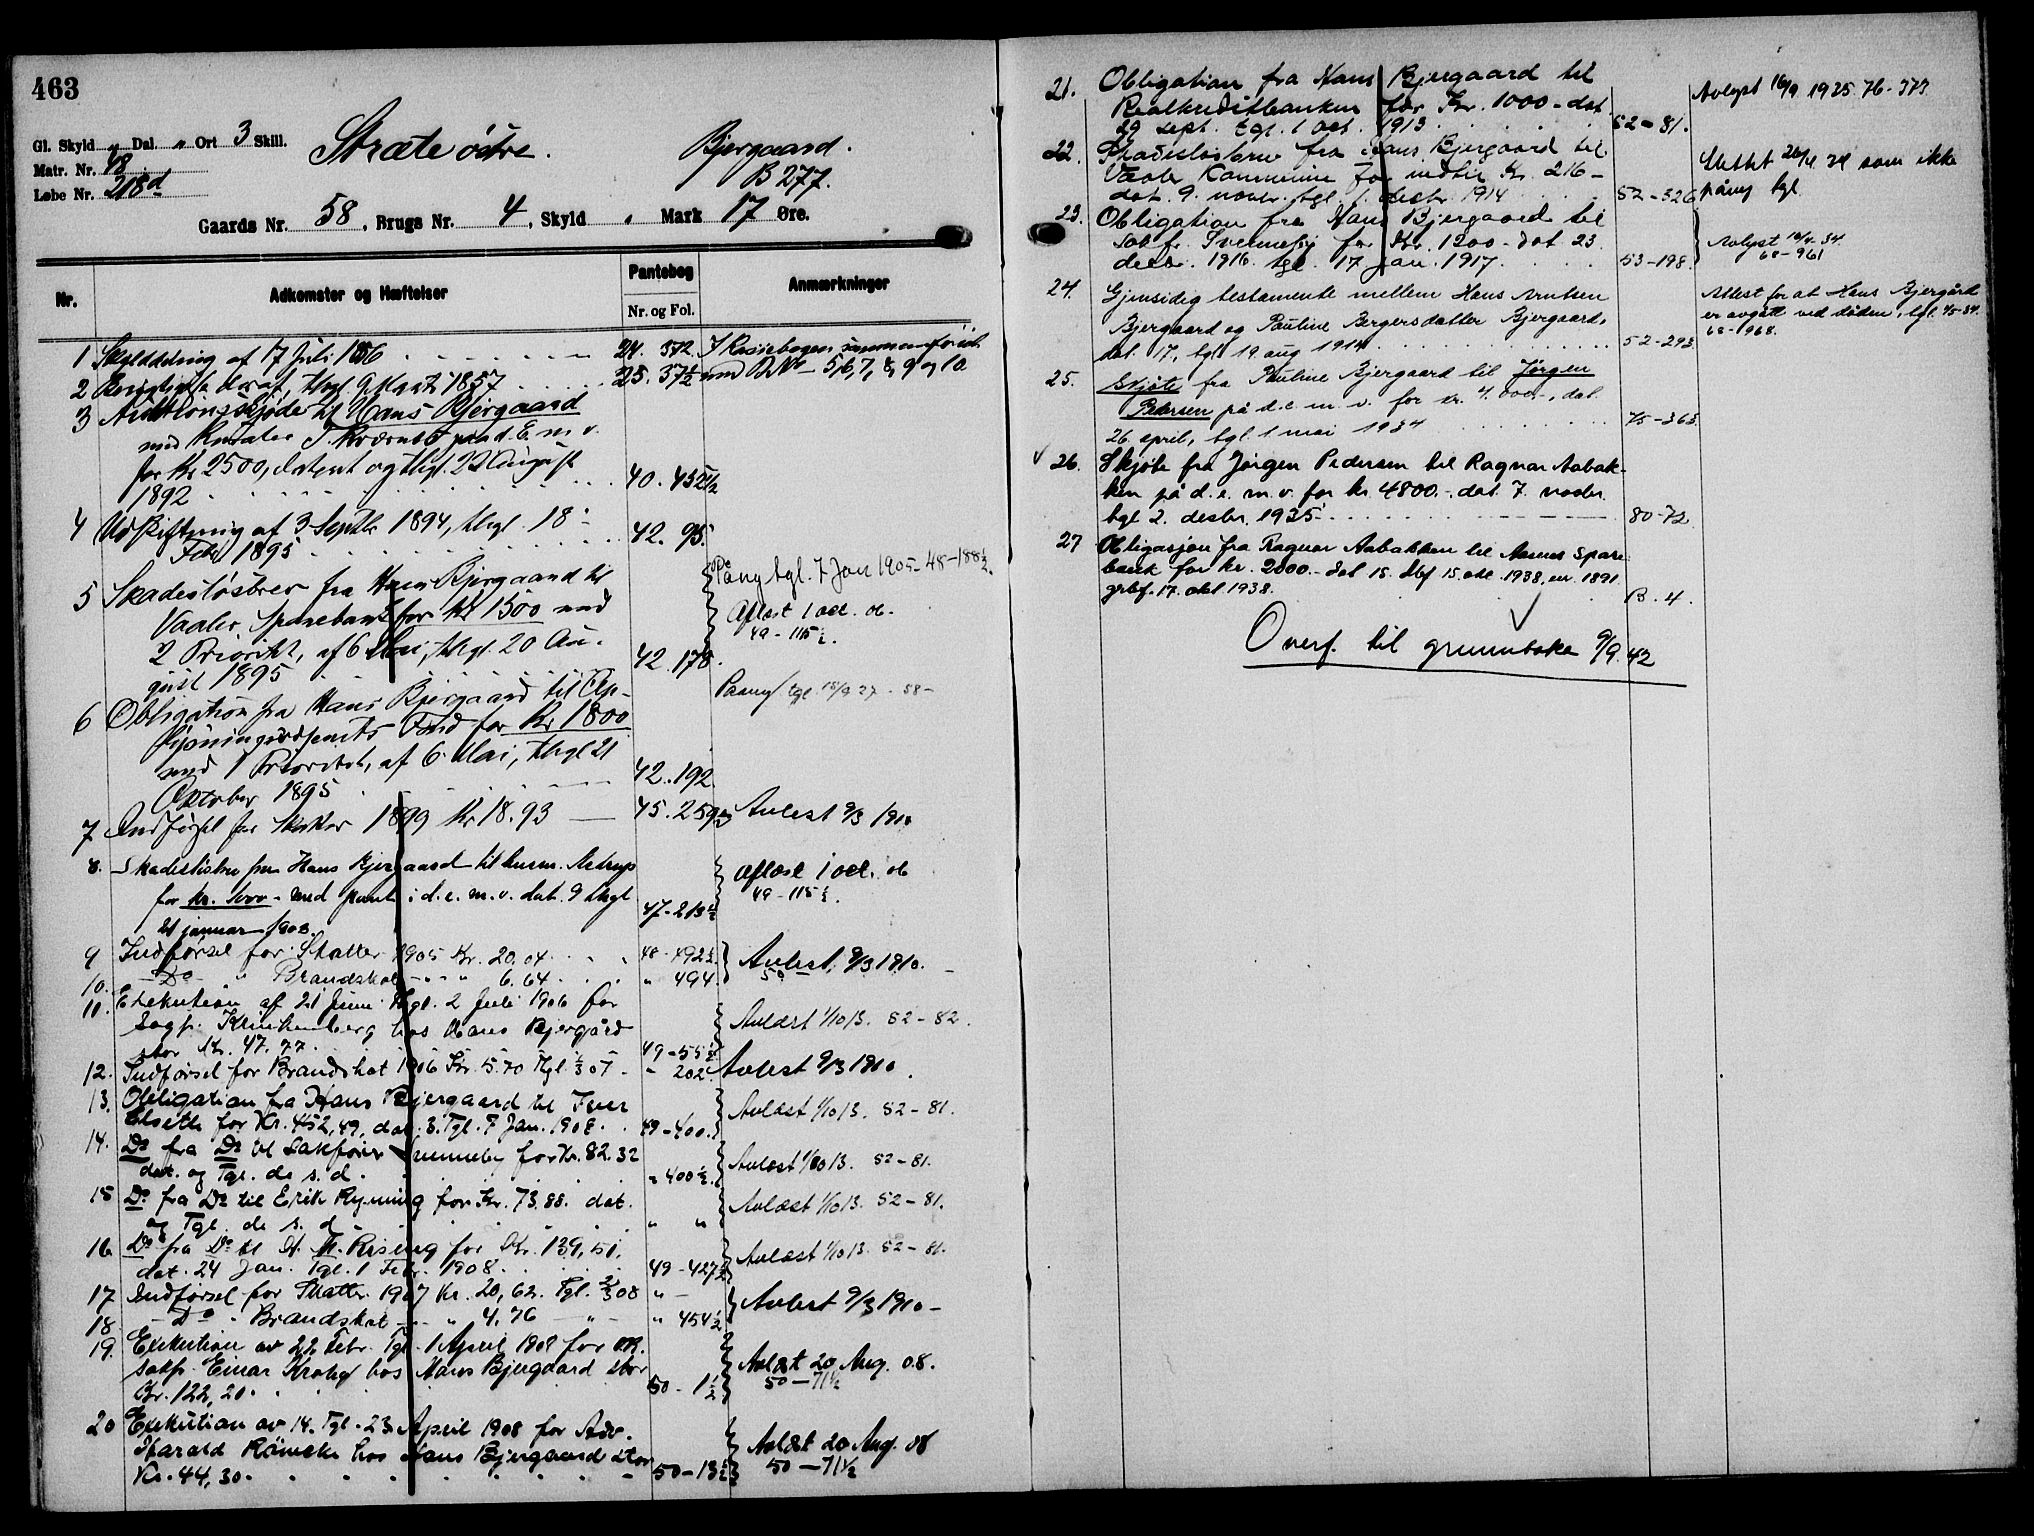 463
Gl. Skyld „ Dal. „ Ort 3 Skill.
Matr. Nr. 48
Løbe Nr. 218d
Stræte østre.
Bjergaard.
B 277.
Gaards Nr. 58, Brugs Nr. 4, Skyld „ Mark 17 Øre.
Nr.
Adkomster og Hæftelser
Pantebog
Nr. og Fol.
Anmærkninger
1 Skylddeling af 17 Juli 1856 24. 372. I Krøsebogen sammenføiet
2 thgl. 9 Marts 1857 25. 37½ med BNo 5, 6, 7, 8, 9 og 10
3 Auktionsskjøde til Hans Bjergaard
med paa d. E. m. v.
for Kr 2500, datert og thgl. 22 August
1892 40. 452½
4 Udskiftning af 3 Septbr 1894, thgl. 18
Febr 1895 42. 95.
5 Skadesløsbrev fra Hans Bjergaard til
Vaaler Sparebank for Kr 1500 med
2 Prioritet, af 6 Mai, thgl. 20 Au-
gust 1895 42. 178.
Pany tgl. 7 Jan 1905 48-188½.
Aflæst 1 oct. 06.
49-115½.
6 Obligation fra Hans Bjergaard til Op-
lysningsvæsenets Fond for Kr 1800
med 1 Prioritet, af 6 Mai, thgl 21
Oktober 1895 42. 192.
Paany tgl. 15/9 27 - 58-
7 Indførsel for Skatter 1899 Kr 18.93 45. 259 Avlest 9/3 1910
8. Skadesløsbrev fra Hans Bjergaard til husm. Astrup
for kr. 1000 - med pant i d. e. m. v. dat. 9 thgl
21 januar 1903. 47-213½
Aflæst 1 oct. 06
49-115½.
9 Indførsel for Skatter 1905 Kr. 20.04 48-492½
10. Do „ Brandskat „ 6.64 „ 494.
Avlest 9/3 1910.
50
11. Exekution af 21 Juni thgl. 2 Juli 1906 for
Sagf. Klinkenberg hos Hans Bjergård
stor Kr. 47.77. 49-55½
Avlæst 1/10 13. 52-82.
12. Indførsel for Brandskat 1906 Kr. 5.70 Tgl. 07 „ 202. Avlest 9/3 1910.
13. Obligation fra Hans Bjergaard til Iver
Elsetti for Kr. 452,49, dat. 3. Tgl. 7 Jan. 1908. 49-400.
Avlæst 1/10 13. 52-81.
14. Do fra Do til Sakfører Svenneby for Kr. 82.32
dat. og Tgl. de s. d. „ 400½.
Avlæst 1/10 13. 52-81.
15 Do fra Do til Erik Ryning for Kr. 73.88. dat.
og Tgl. de s. d. „ „
Avlæst 1/10 13. 52-81.
16. Do fra Do til H. M. Rising for Kr. 139,51,
dat. 24 Jan. Tgl. 1 Febr. 1908. 49-427½
Avlæst 1/10 13. 52-81.
17 Indførsel for Skatter 1907 Kr. 20,62. Tgl. 2/3 08 „ -
18. Do „ Brandskat „ 4,76 „ 454½
Avlest 9/3 1910 -
19. Exekution av 22 Febr. Tgl. 1 April 1908 for
sakf. Einar Krohg hos Hans Bjergaard stor
Kr. 122,20. 50-1½
Avlæst 20 Aug. 08.
50-71½
20 Exekution av 14. Tgl. 23 April 1908 for Adv.
Harald Römcke hos Hans Bjergaard stor
Kr. 44,30. 50-13½
Avlæst 20 Aug. 08
50-71½
21. Obligation fra Hans Bjergaard til
Realkreditbanken for Kr. 1000 - dat
29 sept. tgl. 1 oct. 1913. 52-81.
Avlyst 16/9 1935. 76-377
22. Skadesløsbrev fra Hans Bjergaard til
Vaaler Kommune for indtil Kr. 216 -
dat. 9. novbr. tgl. 1. decbr. 1914 52-326
Slettet som ikke
påny tgl.
23. Obligation fra Hans Bjergaard til
Sakfr. Svenneby for Kr. 1200 - dat 23.
decbr. 1916. tgl. 17 jan. 1917. 53-198.
68-961
24. Gjensidig testamente mellem Hans Arntsen
Bjergaard og Pauline Bergersdatter Bjergaard,
dat. 17, tgl. 19 aug 1914 52-293.
Attest for at Hans Bjergård
er avgått ved døden, tgl.
68-968.
25. Skjøte fra Pauline Bjergaard til Jørgen
Pedersen på d. e. m. v. for kr. 4.000.-, dat.
26 april, tgl. 1 mai 1934 75-363.
26. Skjøte fra Jørgen Pedersen til Ragnar Aabak-
ken på d. e. m. v. for kr. 4800.- dat. 7. novbr.
tgl 2. desbr. 1935 80-72
27 Obligasjon fra Ragnar Aabakken til Aasnes Spare-
bank for kr. 2000.- dat 15. dbf 15. okt. 1938, nr. 1891.
grbf. 17. okt 1938. B. 4.
Overf. til grunnboka 9/9. 42